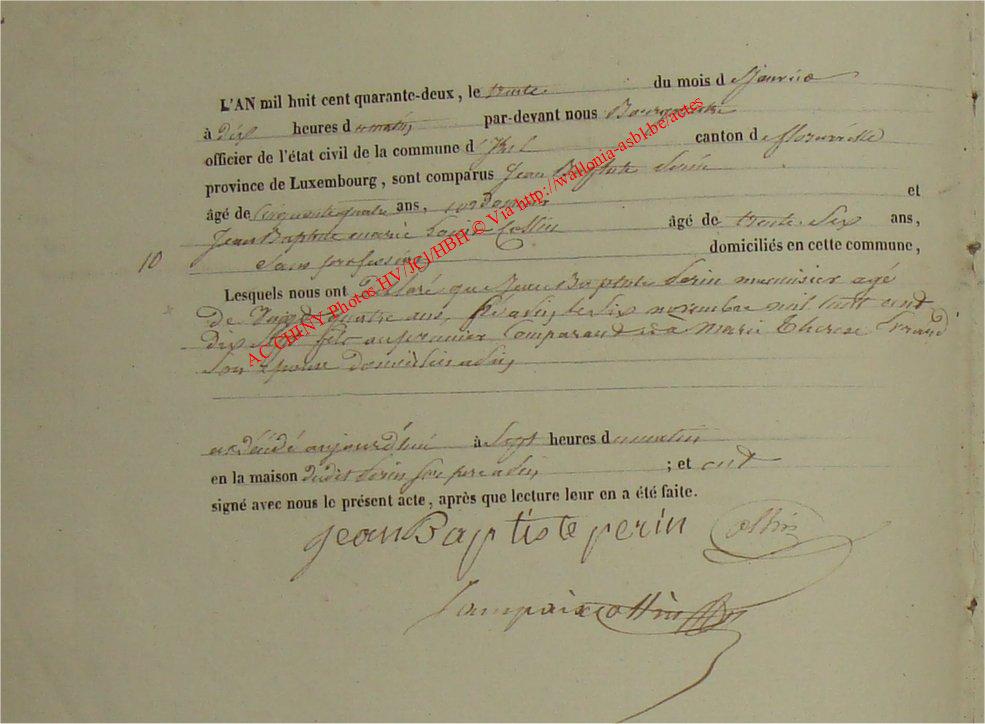 L'AN mil huit cent quarante-deux, le trente du mois d Janvier
à dix heures d matin, par-devant nous Bourgmestre
officier de l'état civil de la commune d canton d florenville
province de Luxembourg, sont comparus Jean Baptiste Perin
âgé de Cinquante quatre ans, et
Jean Baptiste marie Collin âgé de trente Six ans,
10 Sans profession domiciliés en cette commune,
Lesquels nous ont Déclaré que Jean Baptiste Perin meunier agé
De Vingt quatre ans, le Six novembre mil huit cent
dix Sept fils du premier Comparant et a Marie Therese
Son Epouse
est décédé aujourd'hui à Sept heures d matin
en la maison dudit Perin Son pere ; et ont
signé avec nous le présent acte, après que lecture leur en a été faite.
jean Baptiste perin Collin
Lampaix Collin
AC CHINY Photos HV/JCJ/HBH © Via http://wallonia-asbl.be/actes